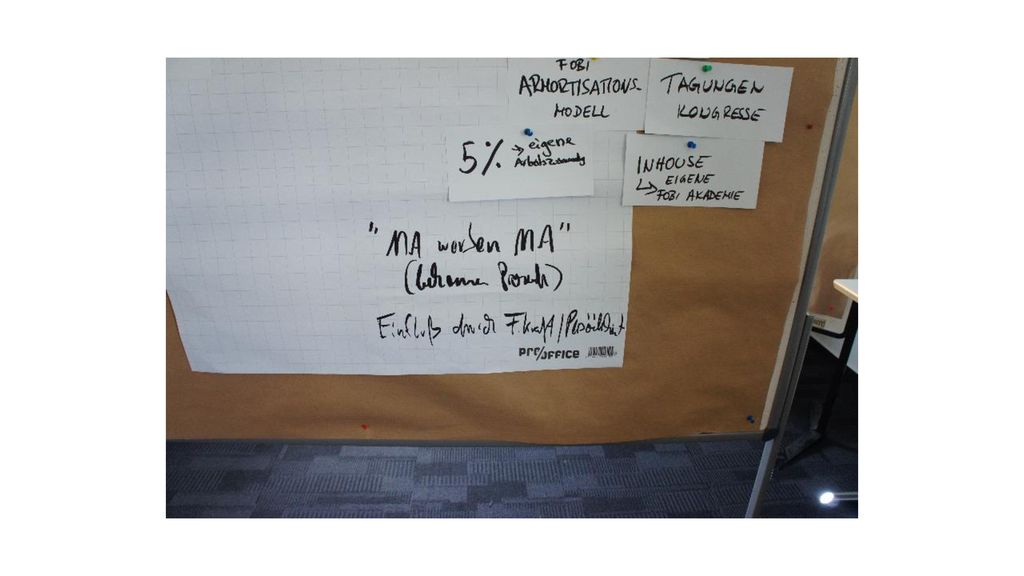 FOBI
ARMORTISATIONS-
MODELL
TAGUNGEN
KONGRESSE
5% → eigene
INHOUSE
↳ EIGENE
FOBI AKADEMIE
"MA werben MA"
Einfluß durch Fkraft/Persönlichkeit
pro/office